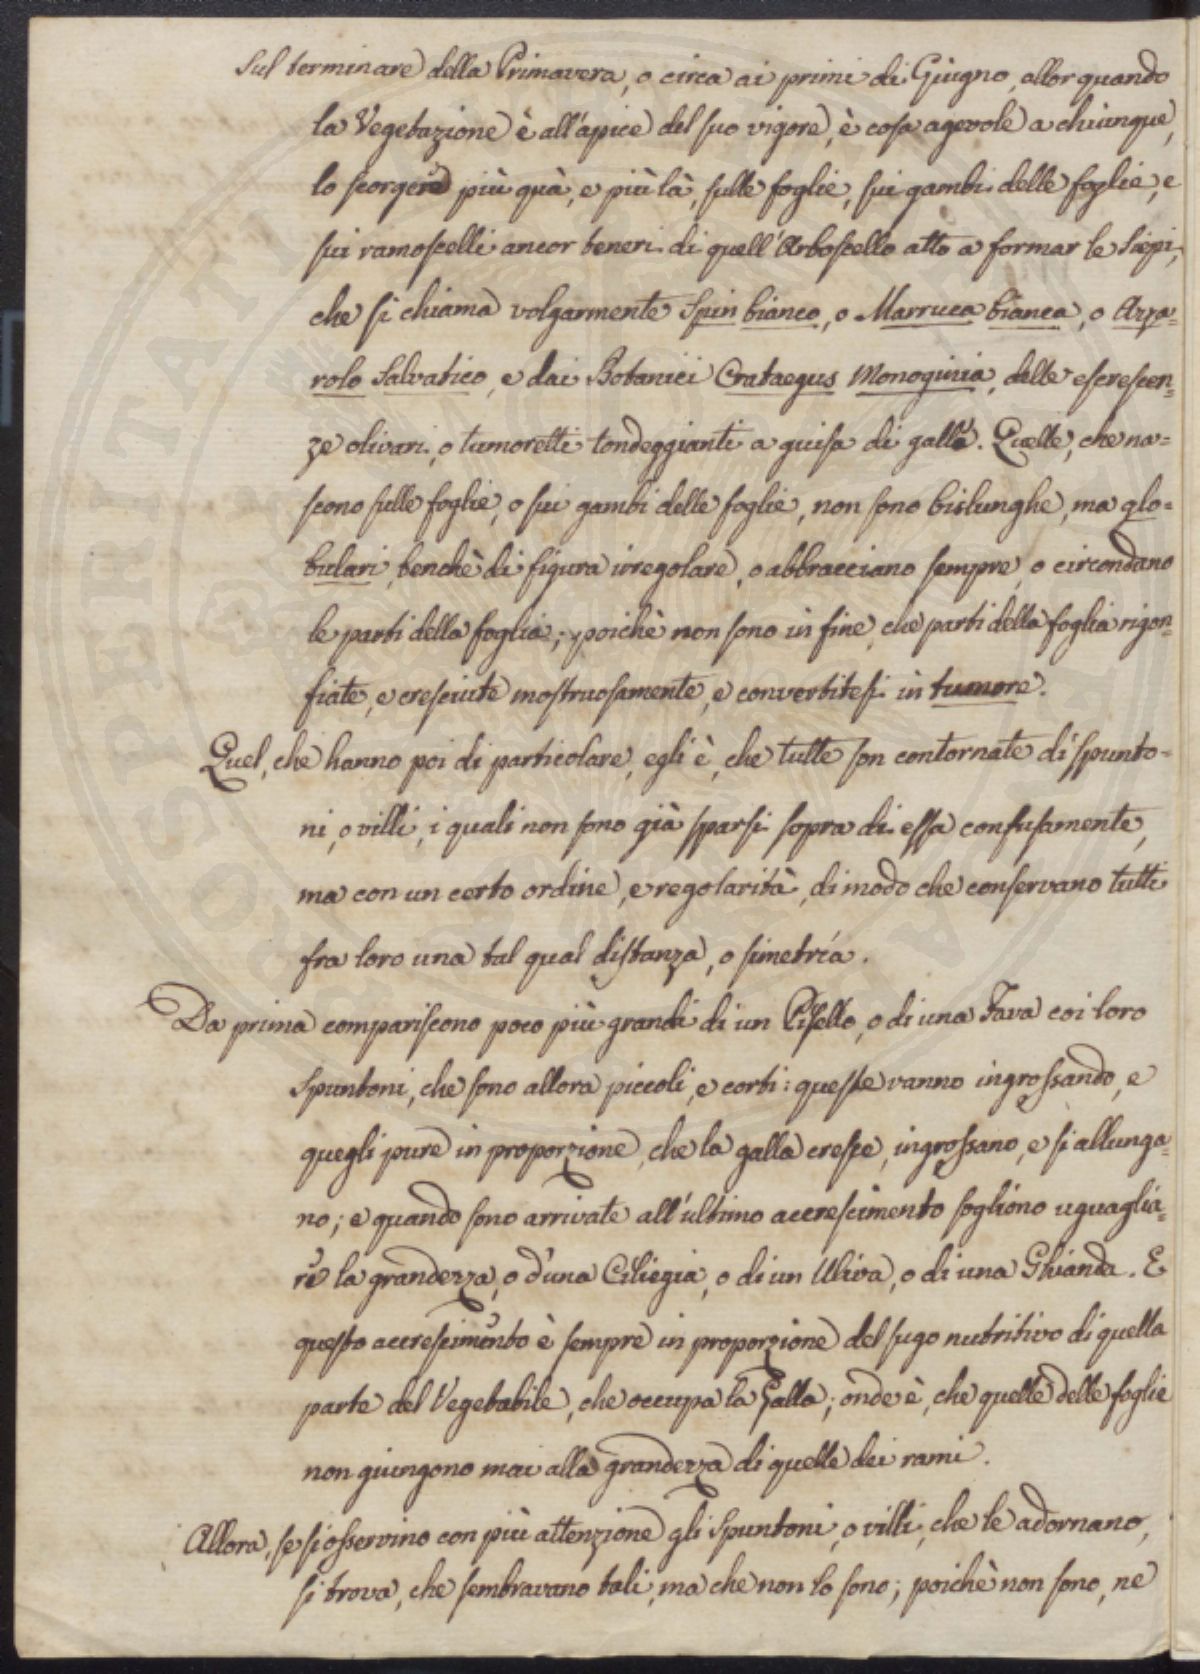 Sul terminare della Primavera, o circa ai primi di Giugno, allor quando
la Vegetazione è all'apice del suo vigore, è cosa agevole a chiunque,
lo scorgere più quà, e più là, sulle foglie, sui gambi delle foglie, e
sui ramoscelli ancor teneri di quell'Arboscello atto a formar le Siepi,
che si chiama volgarmente Spin bianco, o Marruca bianca, o Arza=
rolo Salvatico, e dai Botanici Crataegus Monoginia, delle escrescen=
ze olivari, o tumoretti tondeggianti a guisa di galla. Quelle, che na=
scono sulle foglie, o sui gambi delle foglie, non sono bislunghe, ma glo=
bulari, benchè di figura irregolare, o abbracciano sempre, o circondano
le parti della foglia; poichè non sono in fine, che parti della foglia rigon=
fiate, e cresciute mostruosamente, e convertitesi in tumore.
Quel, che hanno poi di particolare, egli è, che tutte son contornate di spunto=
ni, o villi, i quali non sono già sparsi sopra di essa confusamente,
ma con un certo ordine, e regolarità, di modo che conservano tutti
fra loro una tal qual distanza, o simetría.
Da prima compariscono poco più grandi di un Pisello, o di una Fava coi loro
Spuntoni, che sono allora piccoli, e corti: queste vanno ingrossando, e
quegli pure in proporzione, che la galla cresce, ingrossano, e si allunga=
no; e quando sono arrivate all'ultimo accrescimento sogliono uguaglia=
re la grandezza, o d'una Ciliegia, o di un Uliva, o di una Ghianda. E
questo accrescimento è sempre in proporzione del sugo nutritivo di quella
parte del Vegetabile, che occupa la Galla; onde è, che quelle delle foglie
non giungono mai alla grandezza di quelle dei rami.
Allora, se si osservino con più attenzione gli Spuntoni, o villi, che le adornano,
si trova, che sembravano tali, ma che non lo sono; poichè non sono, ne